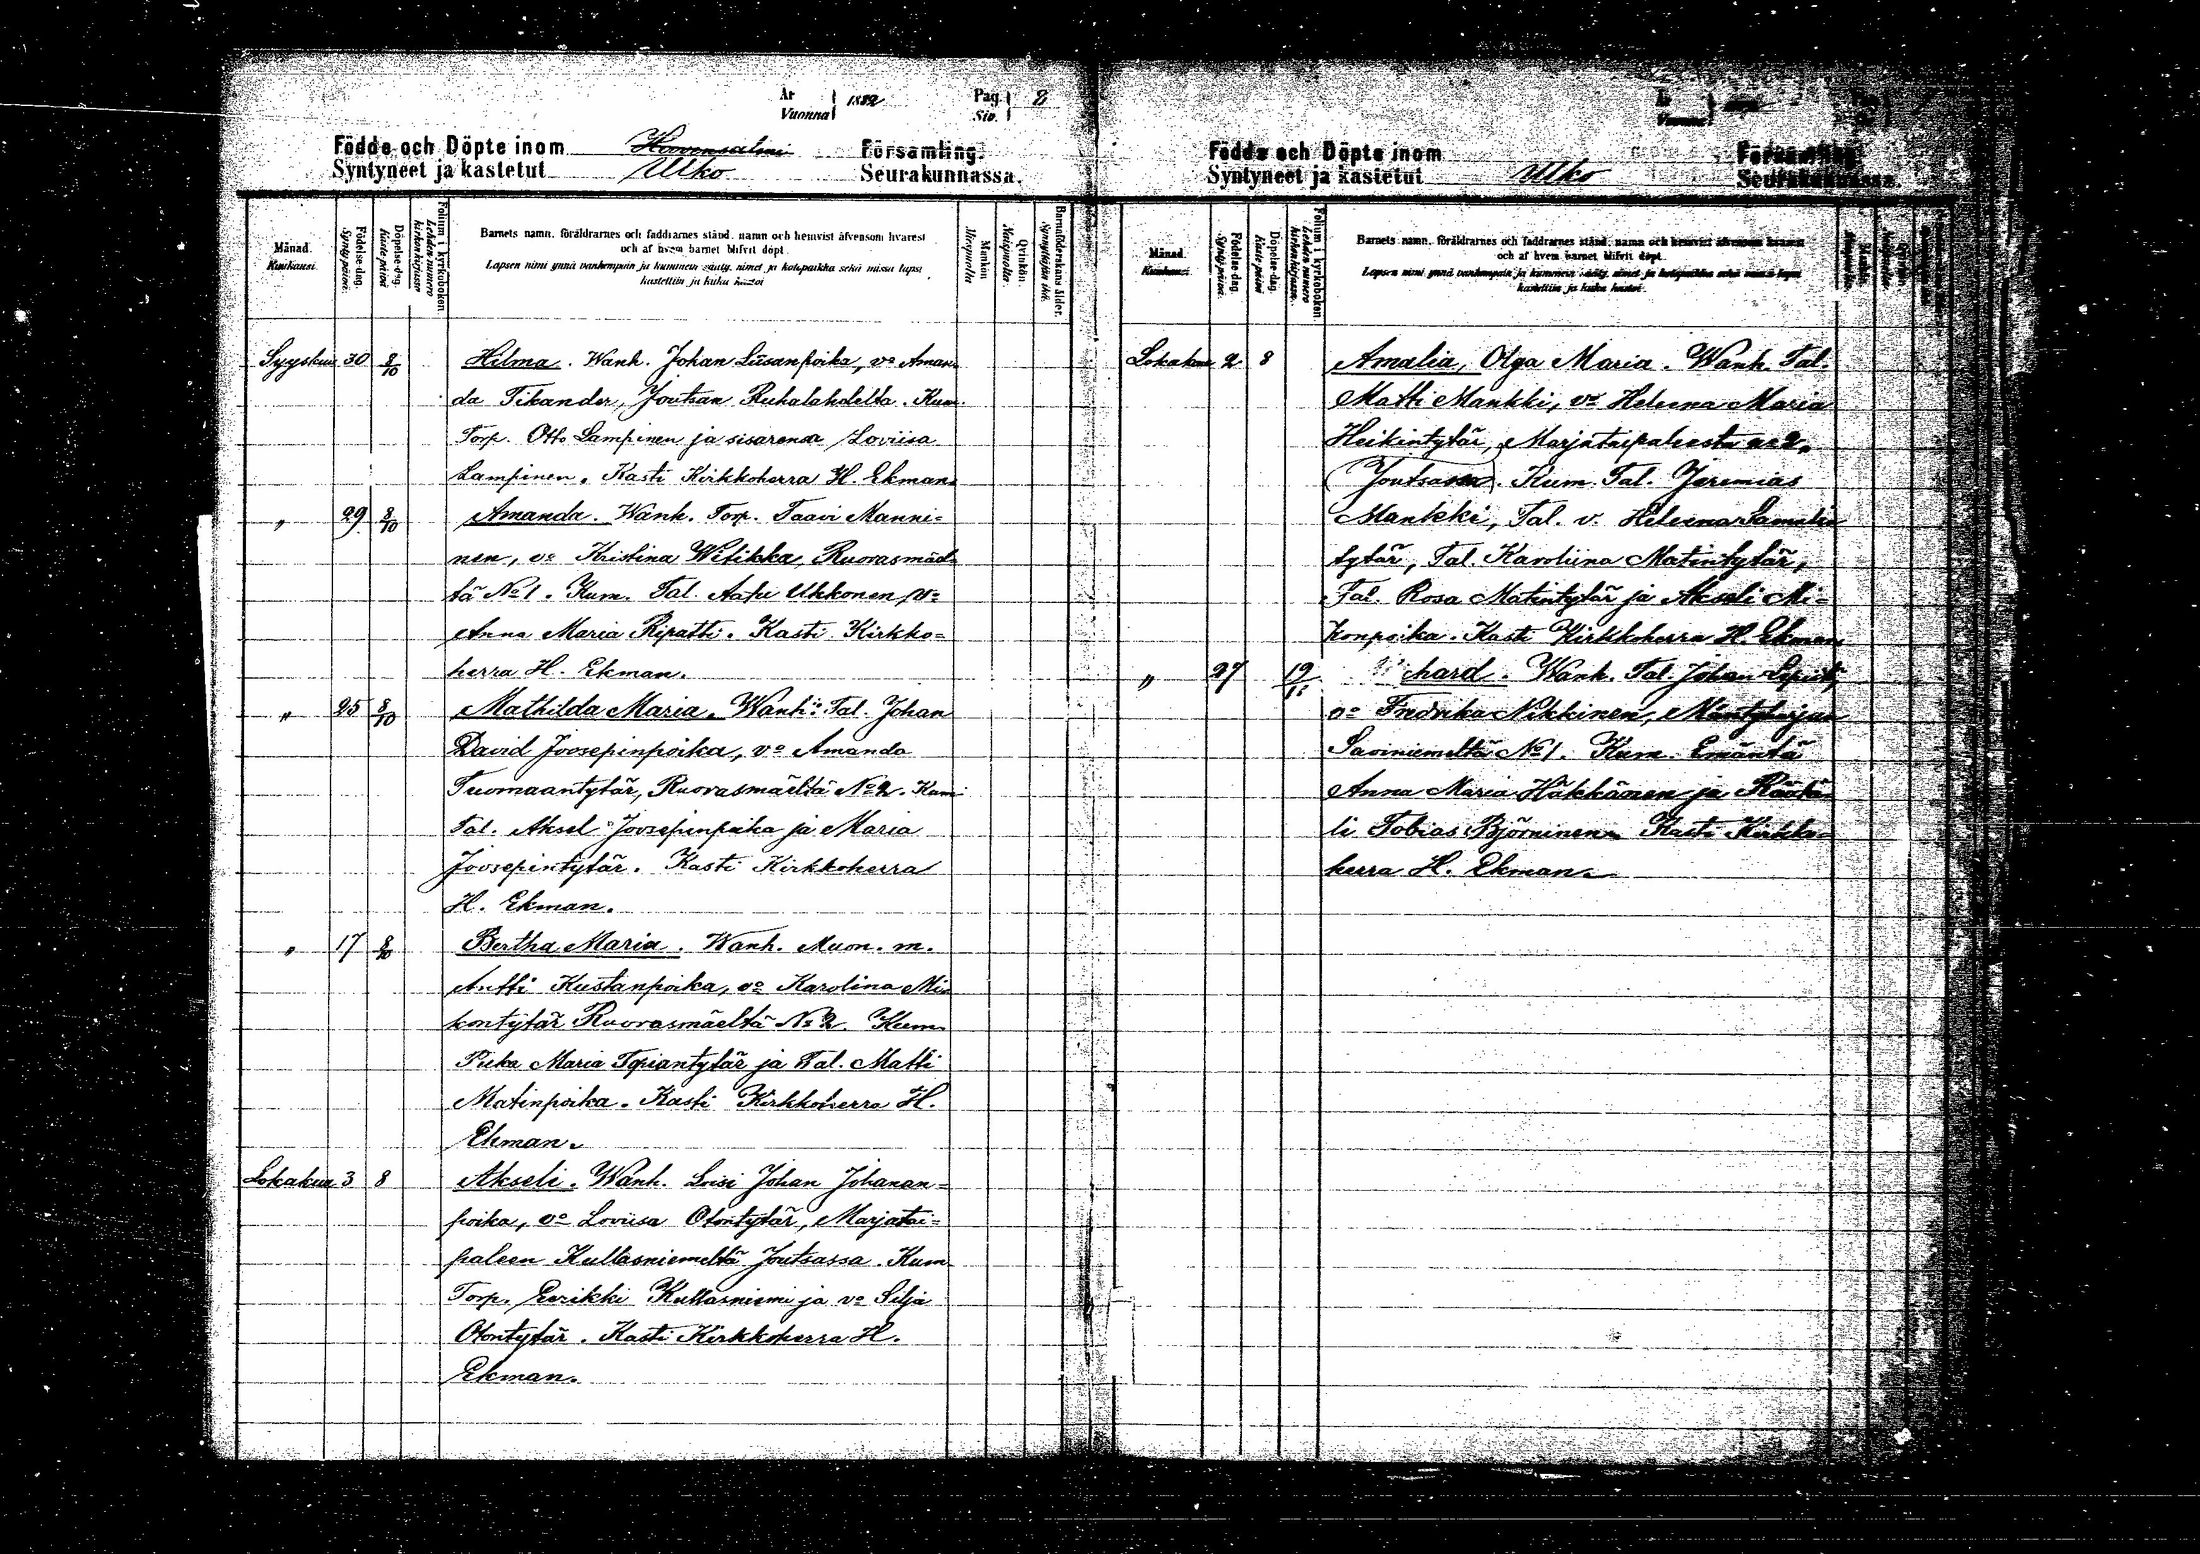 År
Vuonna
1882
Pag.
Siv.
8
Födde och Döpte inom Hirvensalmi Församling.
Syntyneet ja kastetut Ulko Seurakunnassa.
Månad.
Kuukausi.
Födelse-dag.
Synty päivä.
Döpelse-dag.
Kaste päivä
Folium i kyrkoboken.
Lehden numero
kirkon kirjassa
Barnets namn, föräldrarnes och faddrarnes stånd, namn och hemvist äfvensom hvarest
och af hvem barnet blifvit döpt.
Lapsen nimi ynnä vanhempain ja kummein sääty, nimet ja kotipaikka sekä missä lapsi
kastettiin ja kuka kastoi
Mankön
Miespuolta
Qvinkön.
Naispuolta.
Barnaföderskans ålder.
Synnyttäjän ikä.
Syyskuu 30 8/10 Hilma. Wanh. Johan Liisanpoika, vo Aman-
da Tikander, Joutsan Ruhalahdelta. Kum.
Torp. Otto Lampinen ja sisarensa Loviisa
Lampinen. Kasti Kirkkoherra H. Ekman.
„ 29 8/10 Amanda. Wanh. Torp. Taavi Manni-
nen, vo Kristina Witikka, Ruorasmäel-
tä No 1. Kum. Tal. Aatu Ukkonen, vo
Anna Maria Ripatti. Kasti Kirkko-
herra H. Ekman.
„ 25 8/10 Mathilda Maria. Wanh: Tal. Johan
David Joosepinpoika, vo Amanda
Tuomaantytär, Ruorasmäeltä No 2. Kum.
Tal. Aksel Joosepinpoika ja Maria
Joosepintytär. Kasti Kirkkoherra
H. Ekman.
„ 17 8/10 Bertha Maria. Wanh. Muon. m.
Antti Kustanpoika, vo Karolina Mi-
kontytär Ruorasmäeltä No 2. Kum.
Piika Maria Topiantytär ja Tal. Matti
Matinpoika. Kasti Kirkkoherra H.
Ekman.
Lokakuu 3 8 Akseli. Wanh. Loisi Johan Johanan-
poika, vo Loviisa Otontytär, Marjatai-
paleen Kullasniemeltä Joutsassa. Kum
Torp. Eerikki Kullasniemi ja vo Silja
Otontytär. Kasti Kirkkoherra H.
Ekman.
Födde och Döpte inom Församling.
Syntyneet ja kastetut Ulko Seurakunnassa.
Månad.
Kuukausi.
Födelse-dag.
Synty päivä.
Döpelse-dag.
Kaste päivä
Folium i kyrkoboken.
Lehden numero
kirkon kirjassa.
Barnets namn, föräldrarnes och faddrarnes stånd, namn och hemvist äfvensom hvarest
och af hvem barnet blifvit döpt.
Lapsen nimi ynnä vanhempain ja kummein sääty, nimet ja kotipaikka sekä missä lapsi
kastettiin ja kuka kastoi.
Lokakuu 2 8 Amalia, Olga Maria. Wanh. Tal.
Matti Mankki, vo Heleena Maria
Heikintytär, Marjataipaleesta no 2.
(Joutsassa). Kum. Tal. Jeremias
Mankki, Tal. v. Heleena Samulin
tytär, Tal. Karoliina Matintytär,
Tal. Rosa Matintytär ja Akseli Mi-
konpoika. Kasti Kirkkoherra H. Ekman
„ 27 19 hard. Wanh. Tal. Johan
vo Fredrika Nikkinen, Mäntyharjun
Saviniemeltä No 1. Kum. Emäntä
Anna Maria Häkkänen ja Räätä-
li Tobias Björninen. Kasti Kirkko-
herra H. Ekman.